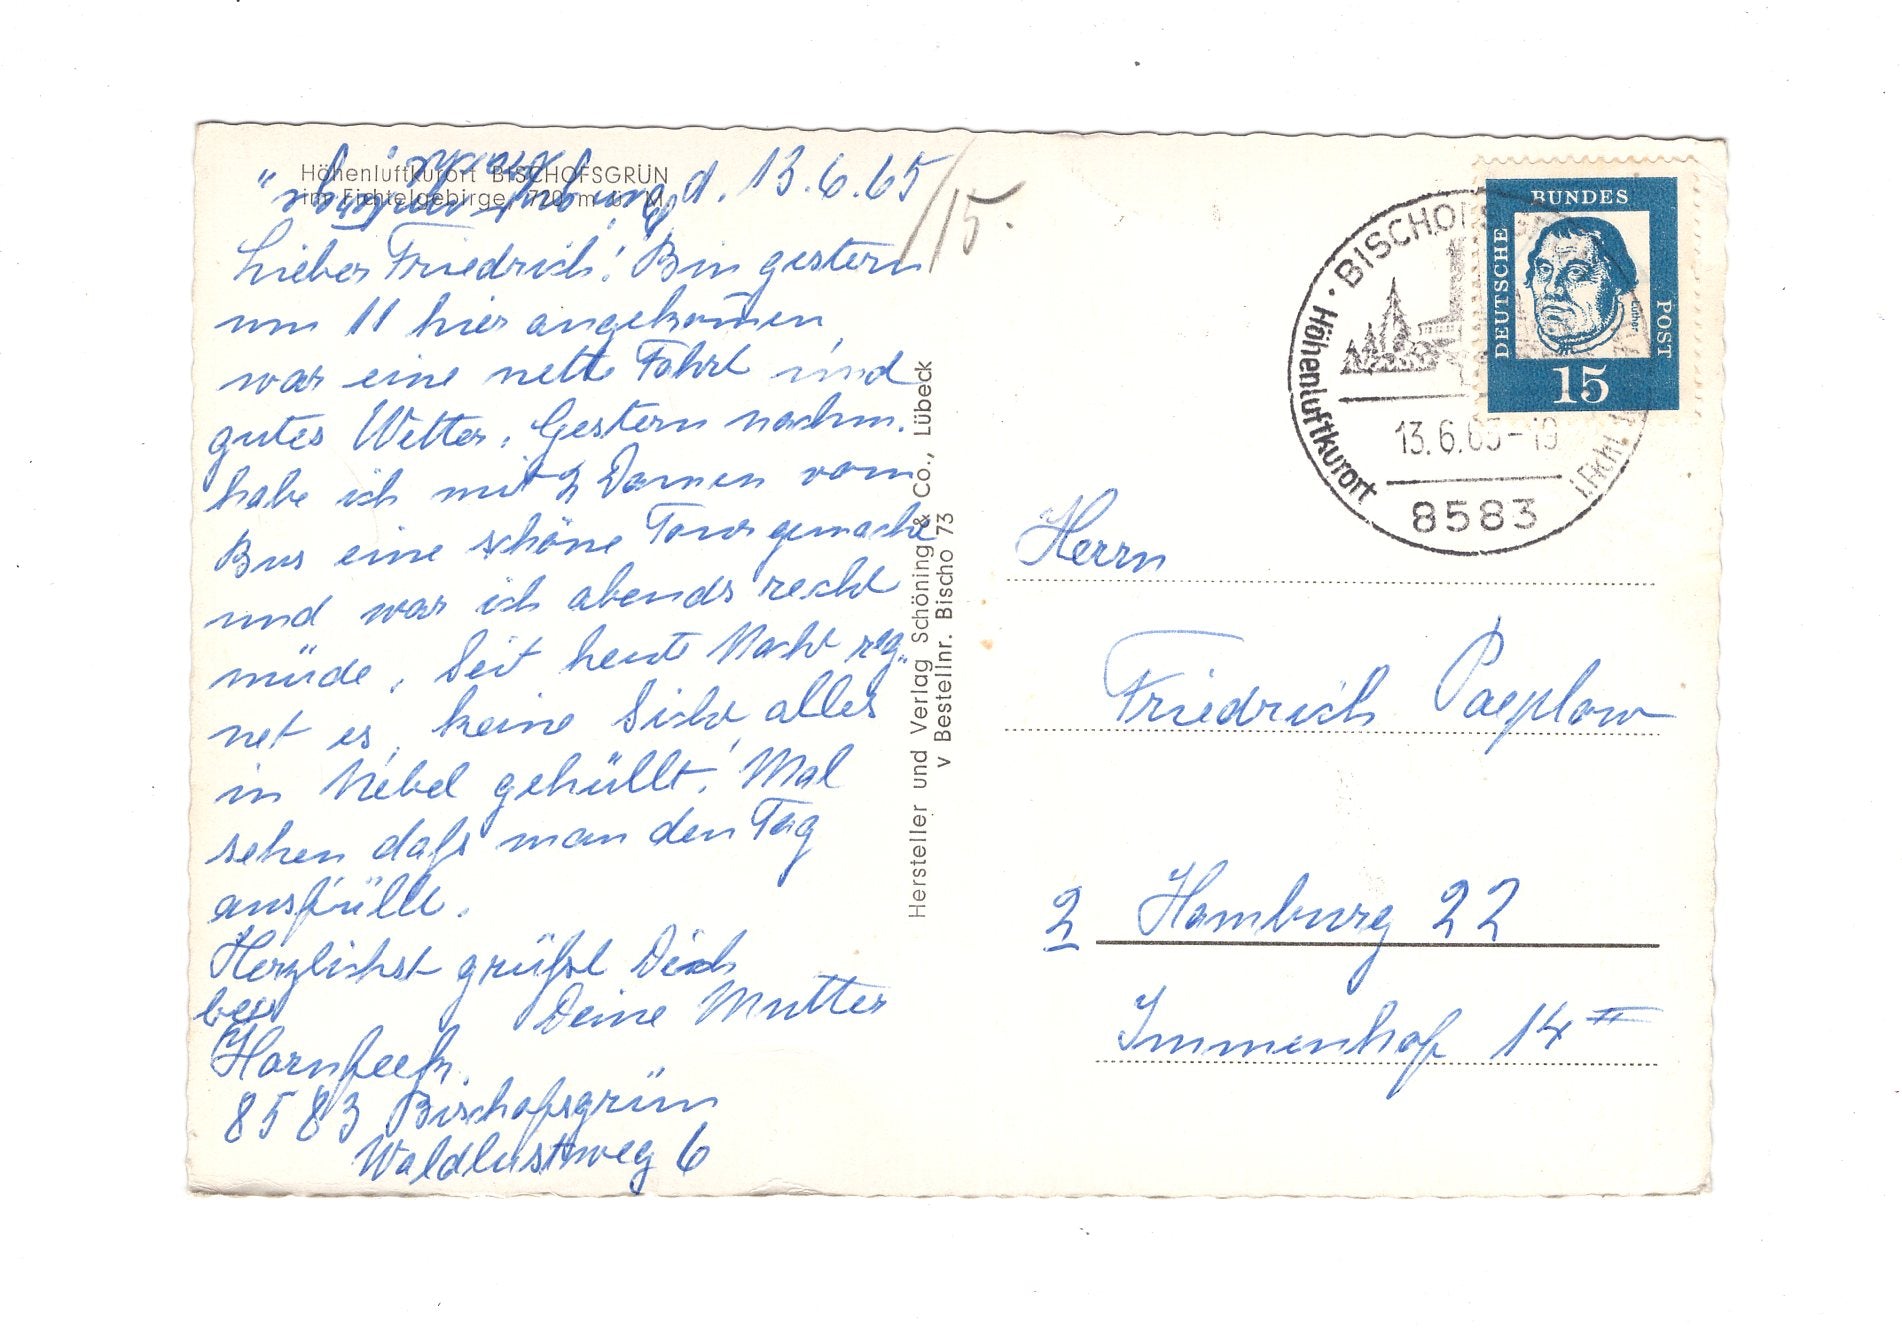 Höhenluftkurort BISCHOFSGRÜN
im Fichtelgebirge, 720 m ü. M.
d. 13.6.65
Lieber Friedrich! Bin gestern
um 11 hier angekom̄en,
war eine nette Fahrt und
gutes Wetter. Gestern nachm.
habe ich mit 2 Damen vom
Bus eine schöne Tour gemacht
und war ich abends recht
müde. Seit heute Nacht reg„
net es, keine Sicht, alles
in Nebel gehüllt! Mal
sehen daß man den Tag
ausfüllt.
Herzlichst grüßt Dich
Deine Mutter
bei
Hornfeck
8583 Bischofsgrün
Waldlustweg 6
15.
Hersteller und Verlag Schöning & Co., Lübeck
v Bestellnr. Bischo 73
· BISCHOFSGRÜN
Höhenluftkurort
i. Fichtl.
13.6.65-19
8583
DEUTSCHE
BUNDES
POST
Luther
15
Herrn
Friedrich Paeplow
2 Hamburg 22
Immenhof 14 II